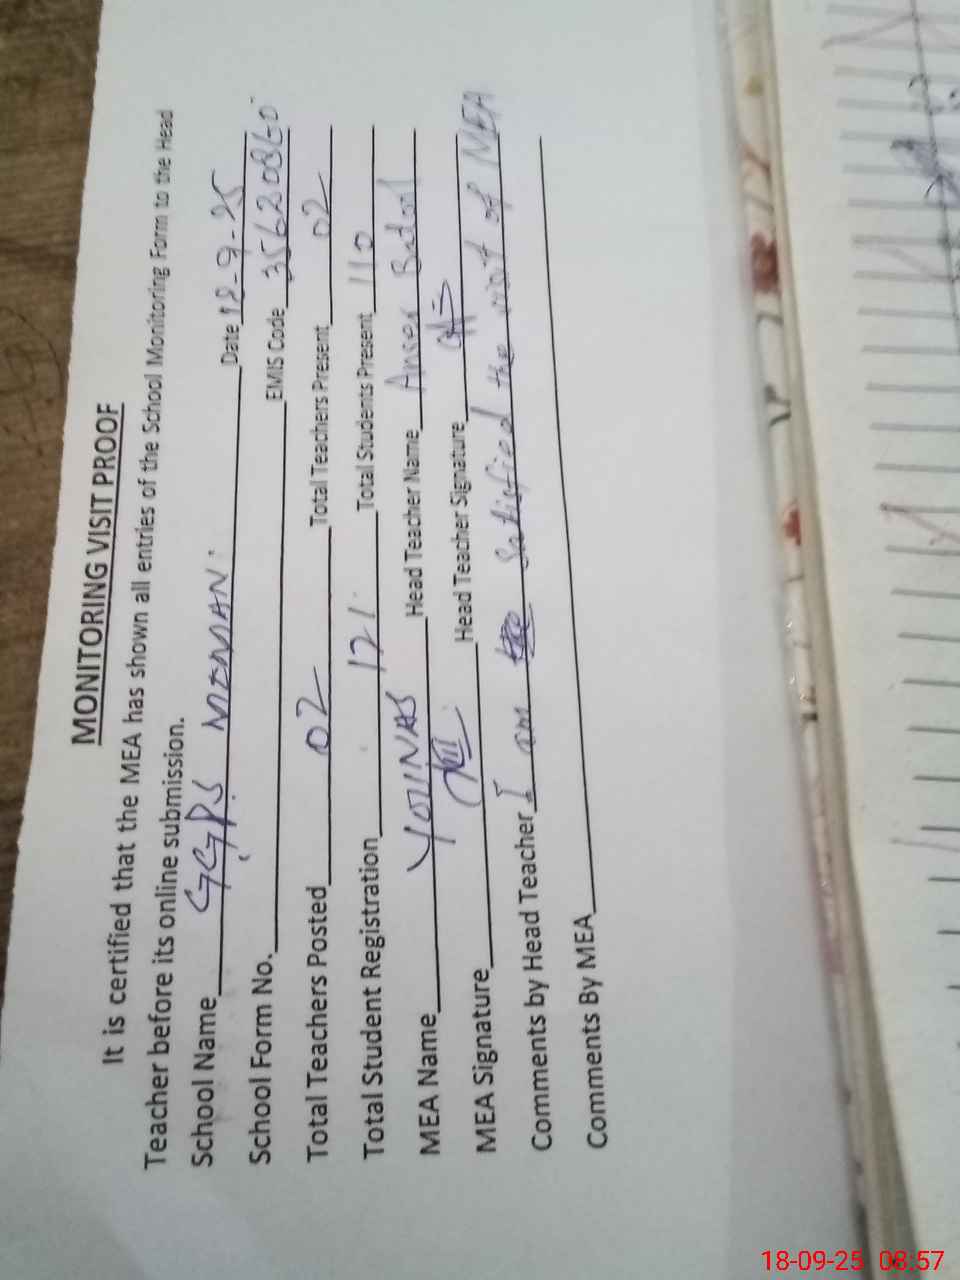 MONITORING VISIT PROOF
It is certified that the MEA has shown all entries of the School Monitoring Form to the Head
Teacher before its online submission.
School Name GGPS MOMAN. Date 18-9-25
School Form No. EMIS Code 35620860
Total Teachers Posted 02 Total Teachers Present 02
Total Student Registration 121 Total Students Present 110
MEA Name YOUNAS Head Teacher Name Batool
MEA Signature Head Teacher Signature
Comments by Head Teacher I am Satisfied the visit of MEA
Comments By MEA
18-09-25 08:57